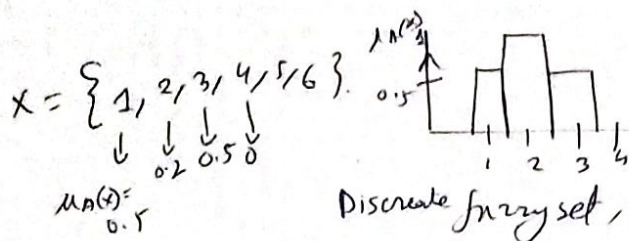 X = { 1, 2, 3, 4, 5, 6 }.
↓ ↓ ↓ ↓
0.2 0.5 0
μA(x)=
0.5
μA(x)
1
0.5
1 2 3 4
Discreate fuzzy set,